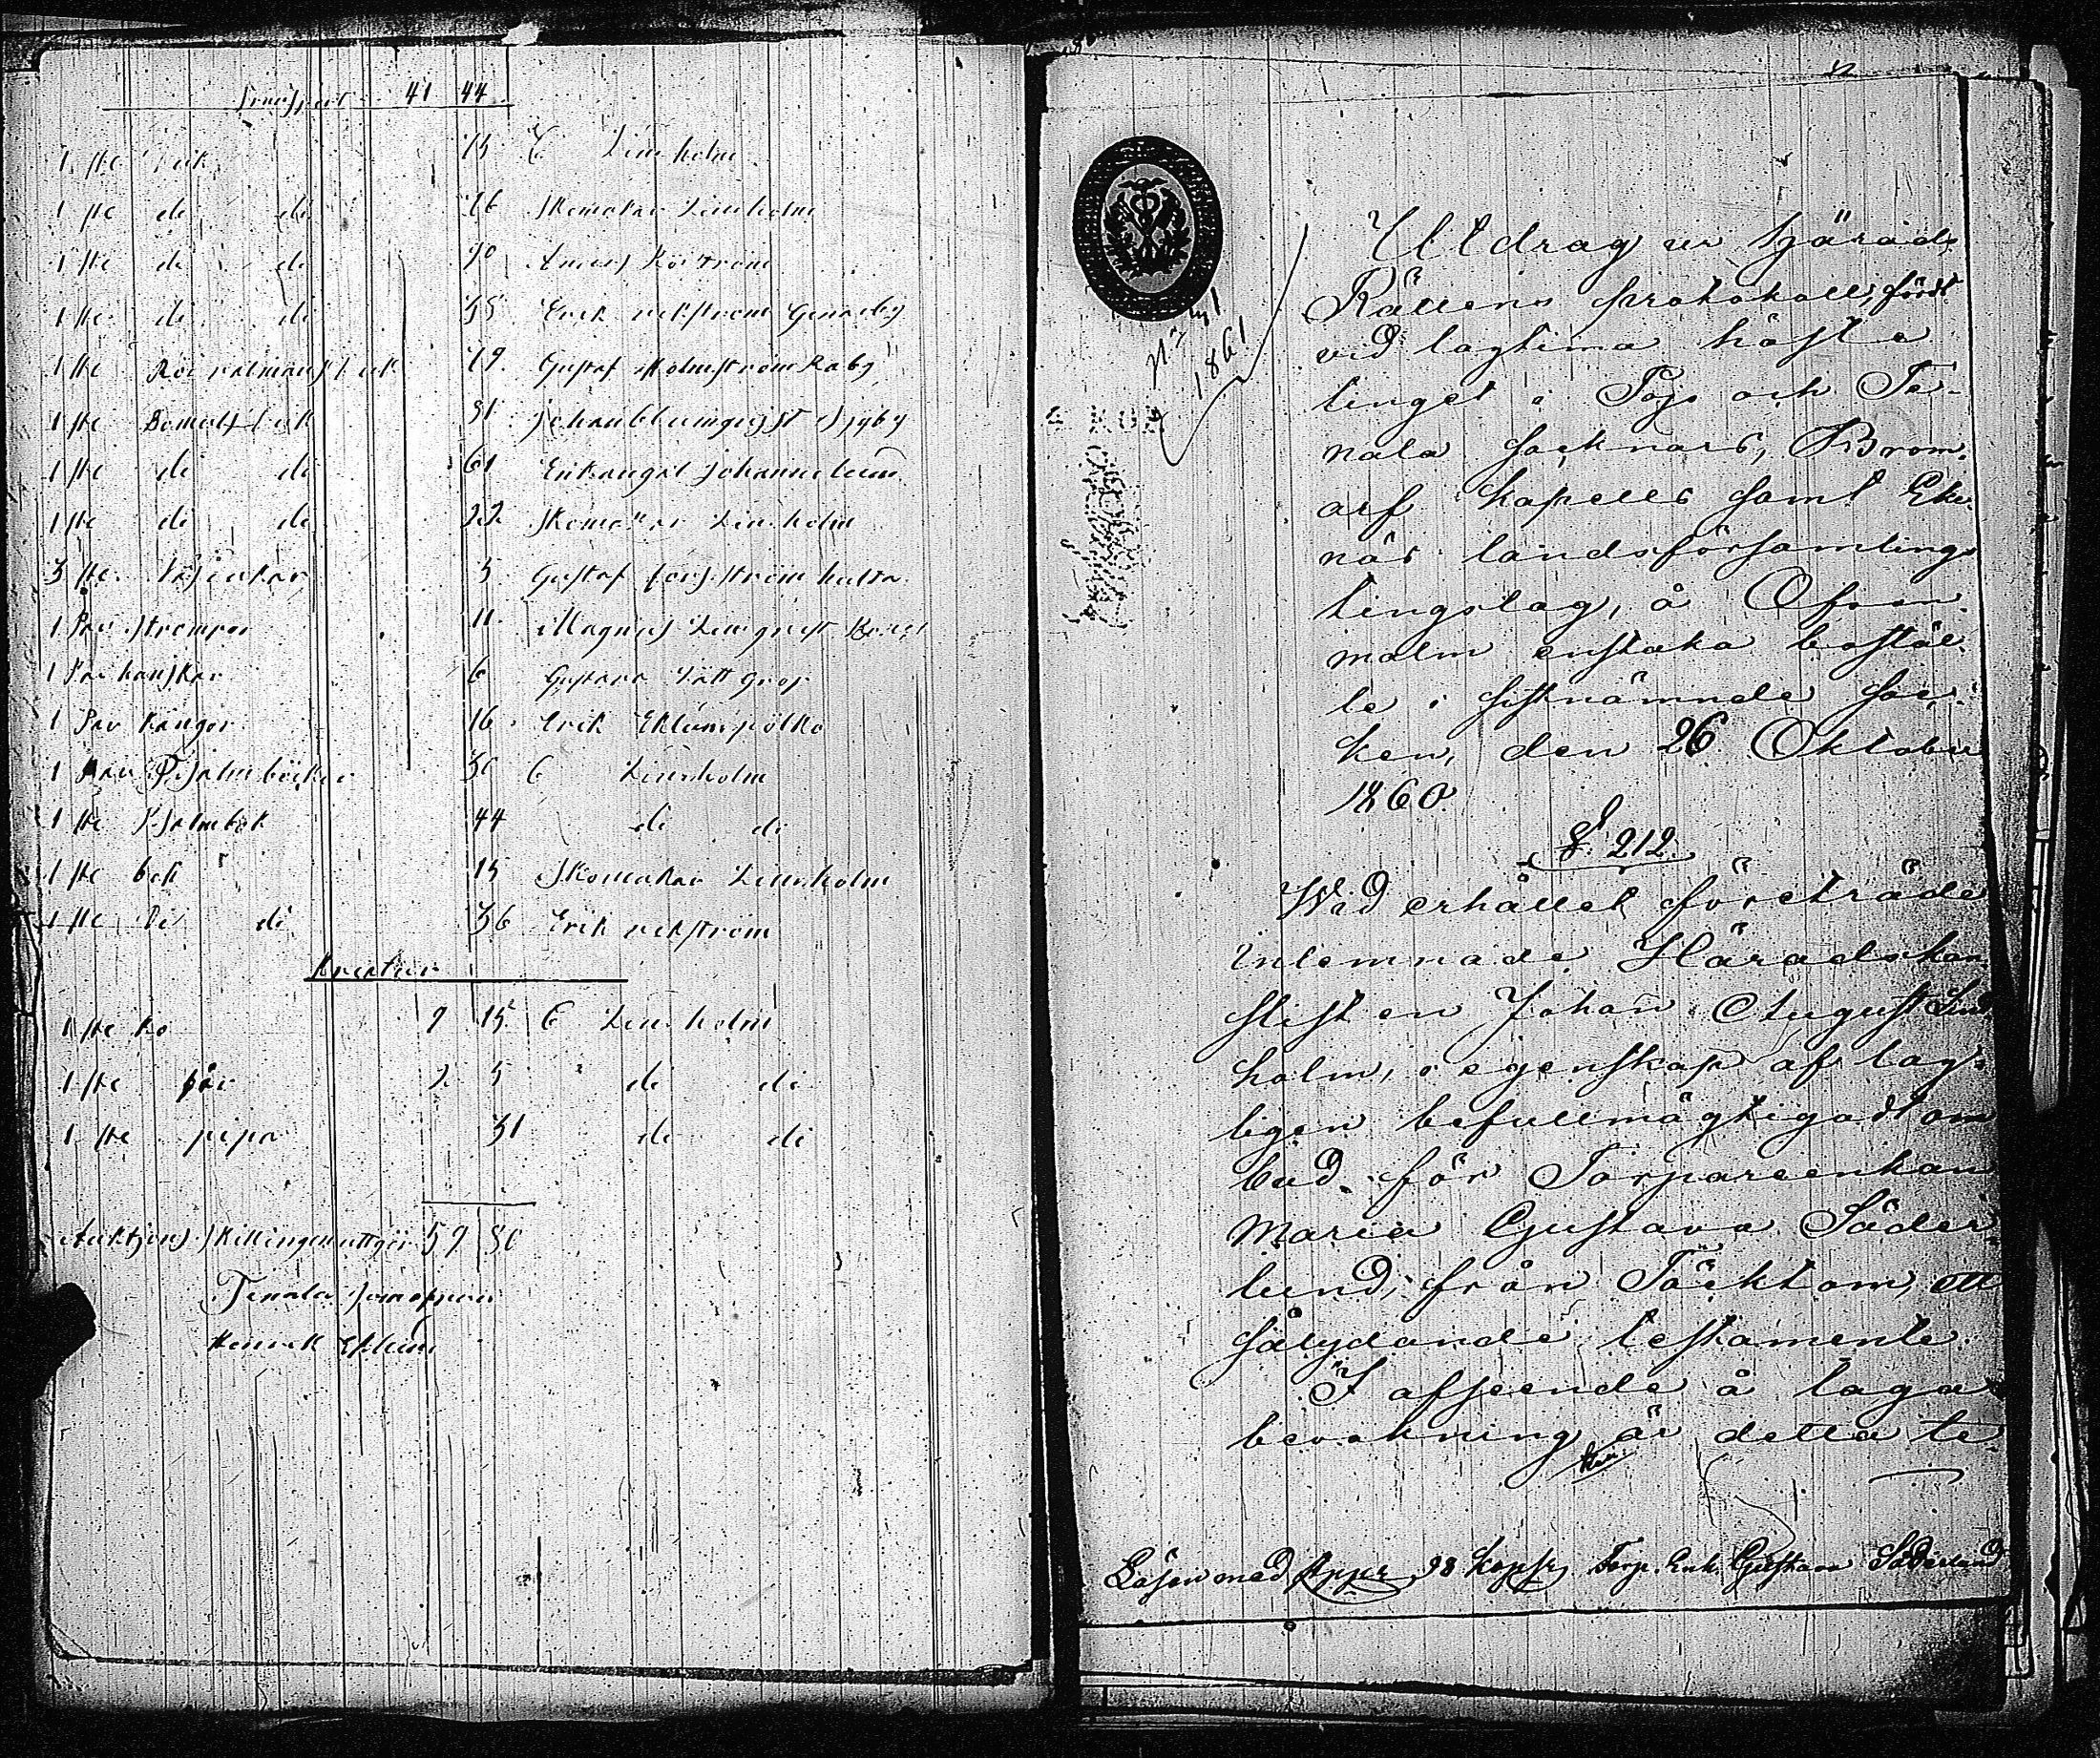 Transport 41 44
1 ste duk 15 C Lindholm
1 ste do do 26 Skomakar Lindholm
1 ste do do 90 Anders Koström
1 ste do do 38 Erik vekström Genneby
1 ste duk 79 Gustaf Holmström Raby
1 ste Bomuls duk 31 Johan Blumqvist
1 ste do do 61 Johannelund
1 ste do do 22 Skomakar Lindholm
3 ste Näsdukar 5 Gustaf forsström hulta
1 Par Strompor 11 Magnus Lindqvist
1 Par hanskar 6 Gustava
1 Par kängor 16 Erik Eklund pölko
1 Par Psalmböcker 30 C Lindholm
1 ste Psalmbok 44 do do
1 ste bok 15 Skomakar Lindholm
1 ste do do 36 Erik vekström
Kreatur
1 ste ko 9 15 C Lindholm
1 ste får 2 5 do do
1 ste pipa 31 do do
Auktions Skillingen utgör 59 80
Tenala
Henrik Eklund
1861
Utdrag ur Härads
Rättens protokoll, fördt
vid lagtima höste
tinget i Pojo och Te-
nala socknars, Brom-
arf kapells samt Eke-
näs landsförsamlings
tingslag, å Ofvan-
malm enstaka bostäl-
le i sistnämnde soc-
ken, den 26 Oktober
1860.
§. 212.
Wid erhållet företräde
inlemnade Häradskan-
slisten Johan August Lind
holm, i egenskap af lag-
ligen befullmägtigadt om
bud för Torpareenkan
Maria Gustava Söder-
lund, från Täcktom, ett
sålydande testamente.
I afseende å laga
bevakning är detta te-
Lösen med 98 kop Torp. Enk. Gustava Söderlund